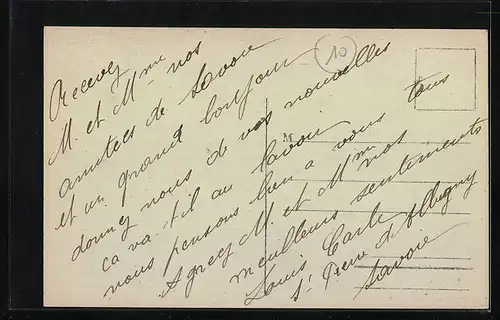 10
Recevez
M. et Mme nos
amitées de Savoie
et un grand bonjour
donnez nous de vos nouvelles
ca va-t-il au Savoie
nous pensons bien a vous tous
Agreez M. et Mme nos
meulleurs sentiments
Louis Carle
St Pierre d'Albigny
Savoie
M